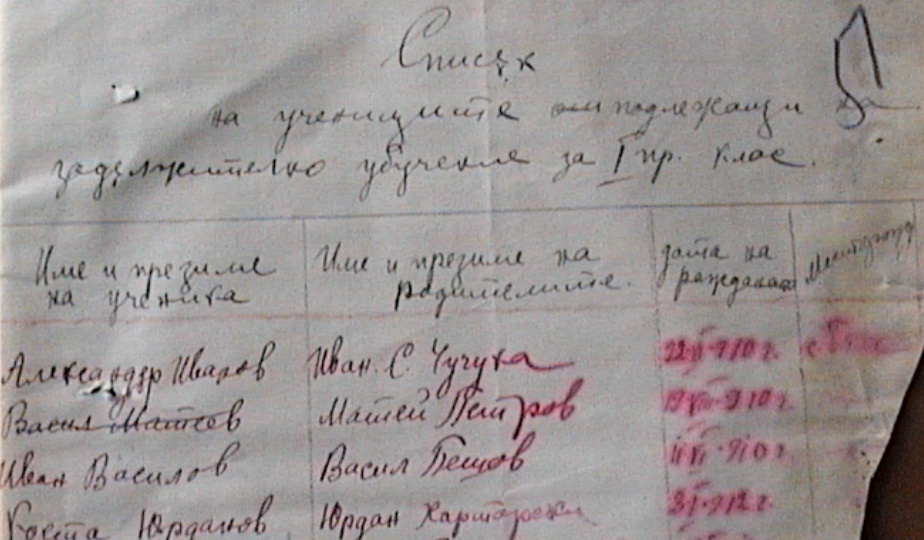 Списък
на учениците подлежащи на
задължително убучение за I пр. клас.
Име и презиме на ученика
Име и презиме на родителите.
дата на
Александър Иванов Иван. С. Чучука 22·910 г.
Васил Матеев Матей Петров 19·910 г.
Иван Василов Васил Бещов 910 г.
Коста Юрданов Юрдан 912 г.